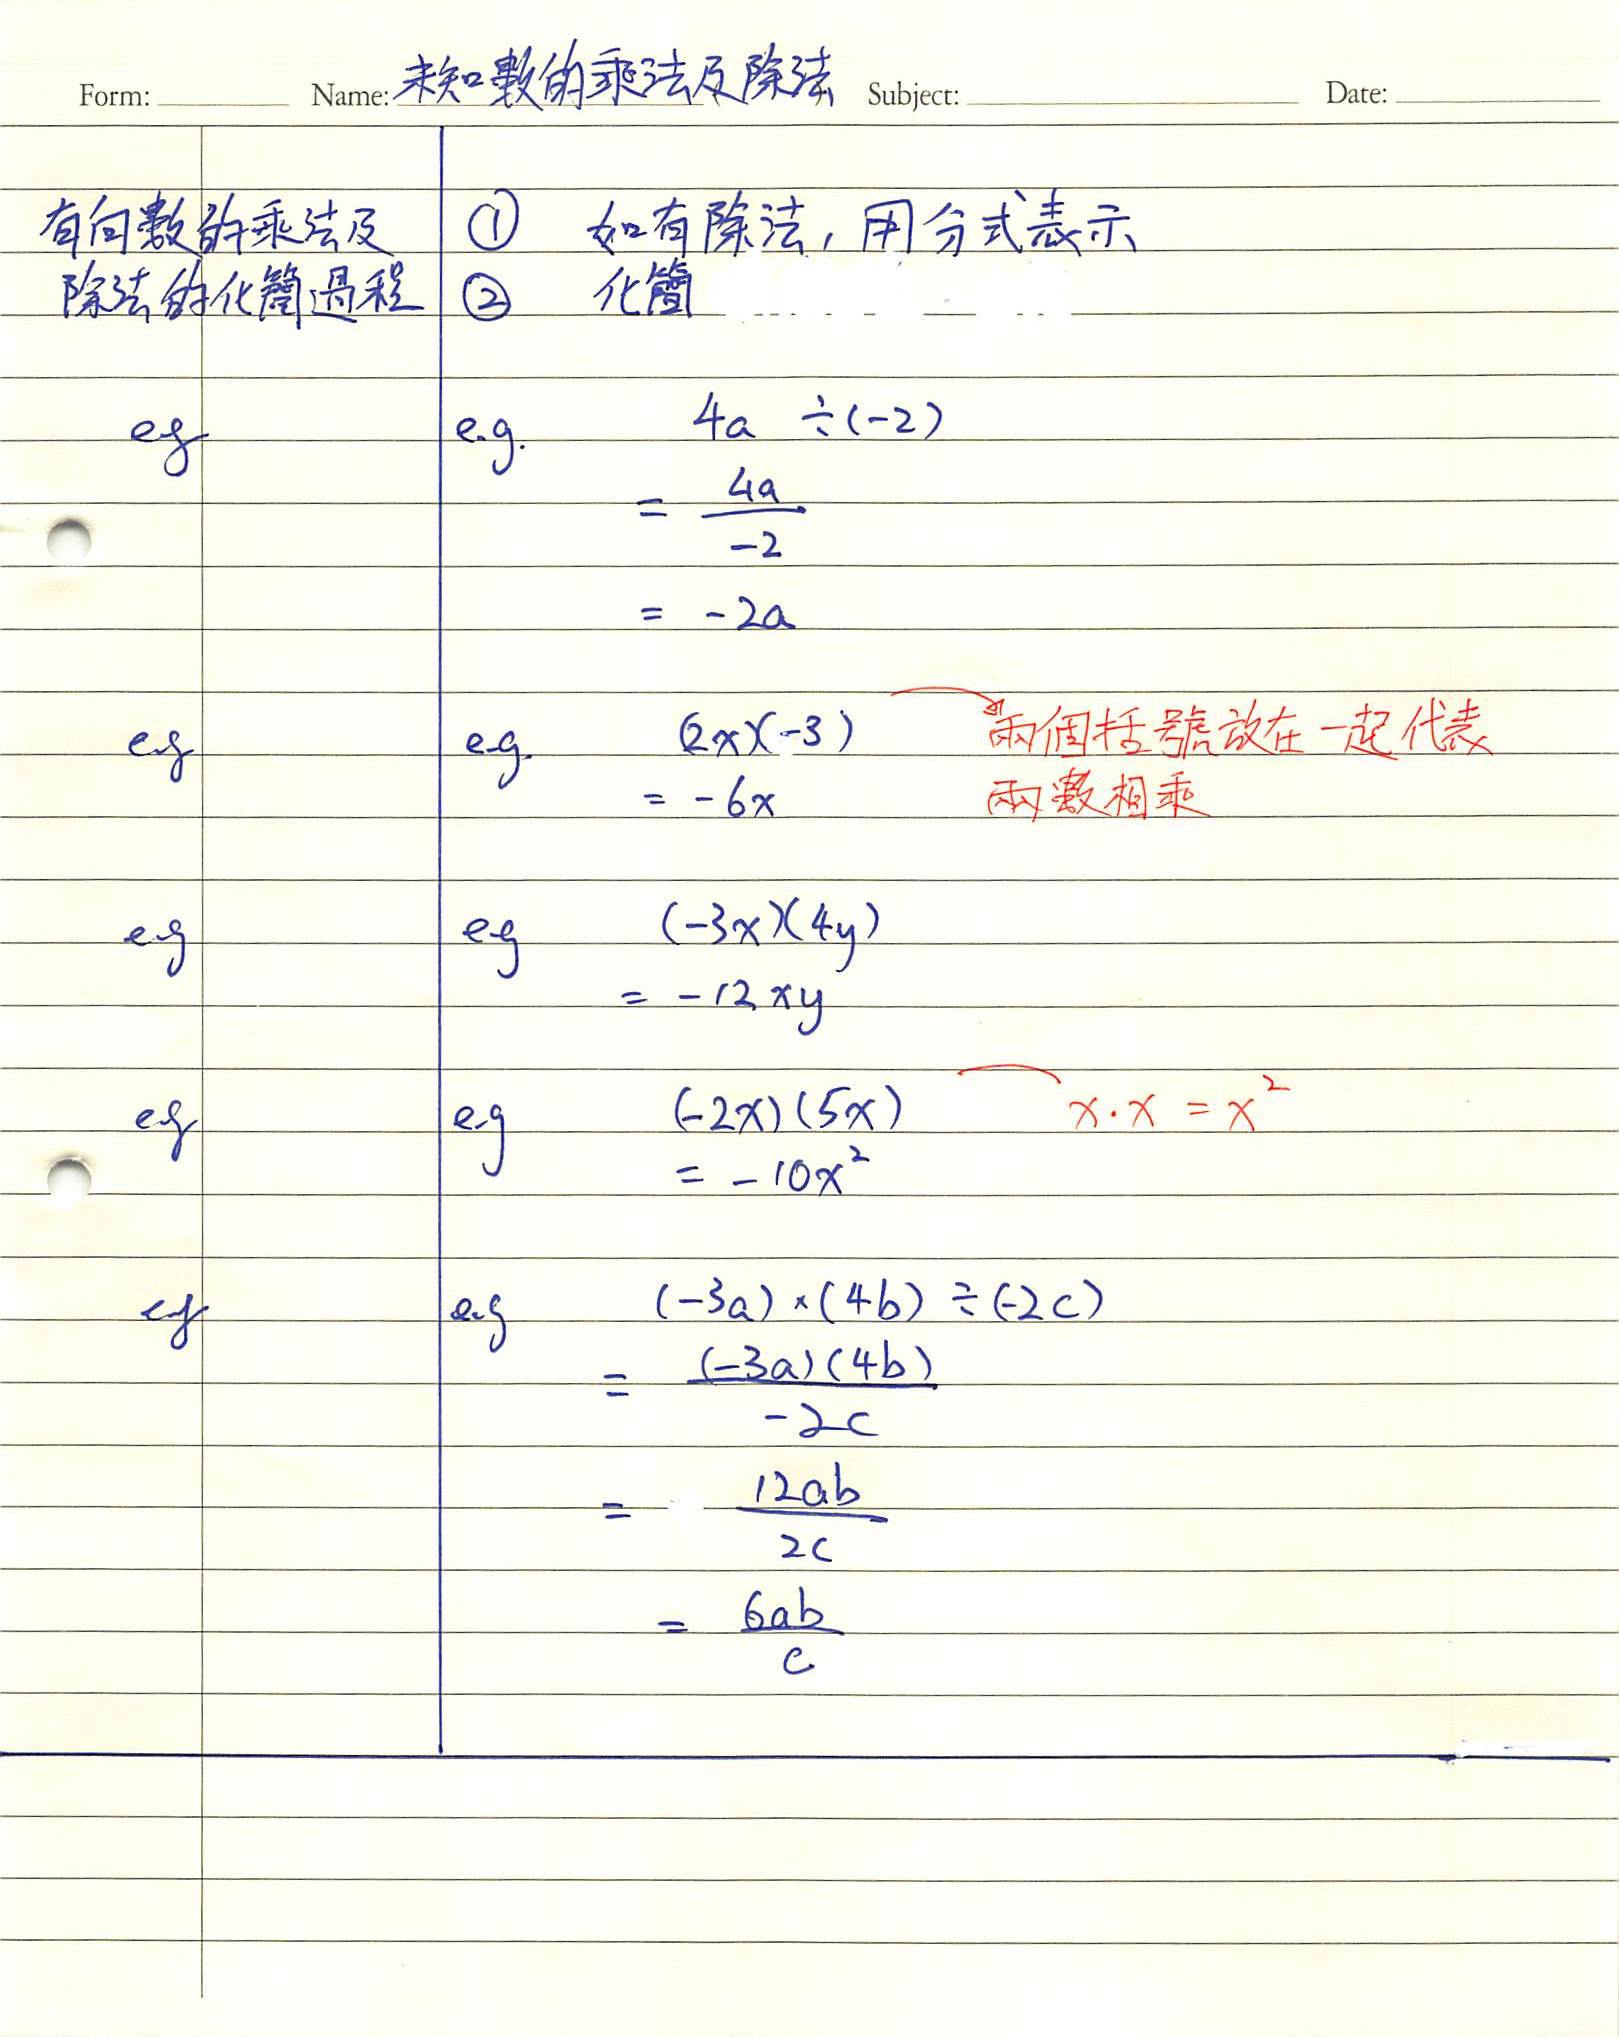 Form: Name: 未知數的乘法及除法 Subject: Date:
有向數的乘法及
除法的化簡過程
① 如有除法，用分式表示
② 化簡
eg e.g. 4a ÷(-2)
= 4a/-2
= -2a
eg e.g. (2x)(-3) 兩個括號放在一起代表
= -6x 兩數相乘
e.g eg (-3x)(4y)
= -12xy
eg e.g (-2x)(5x) x·x = x²
= -10x²
eg e.g (-3a)×(4b)÷(-2c)
= (-3a)(4b)/-2c
= 12ab/2c
= 6ab/c